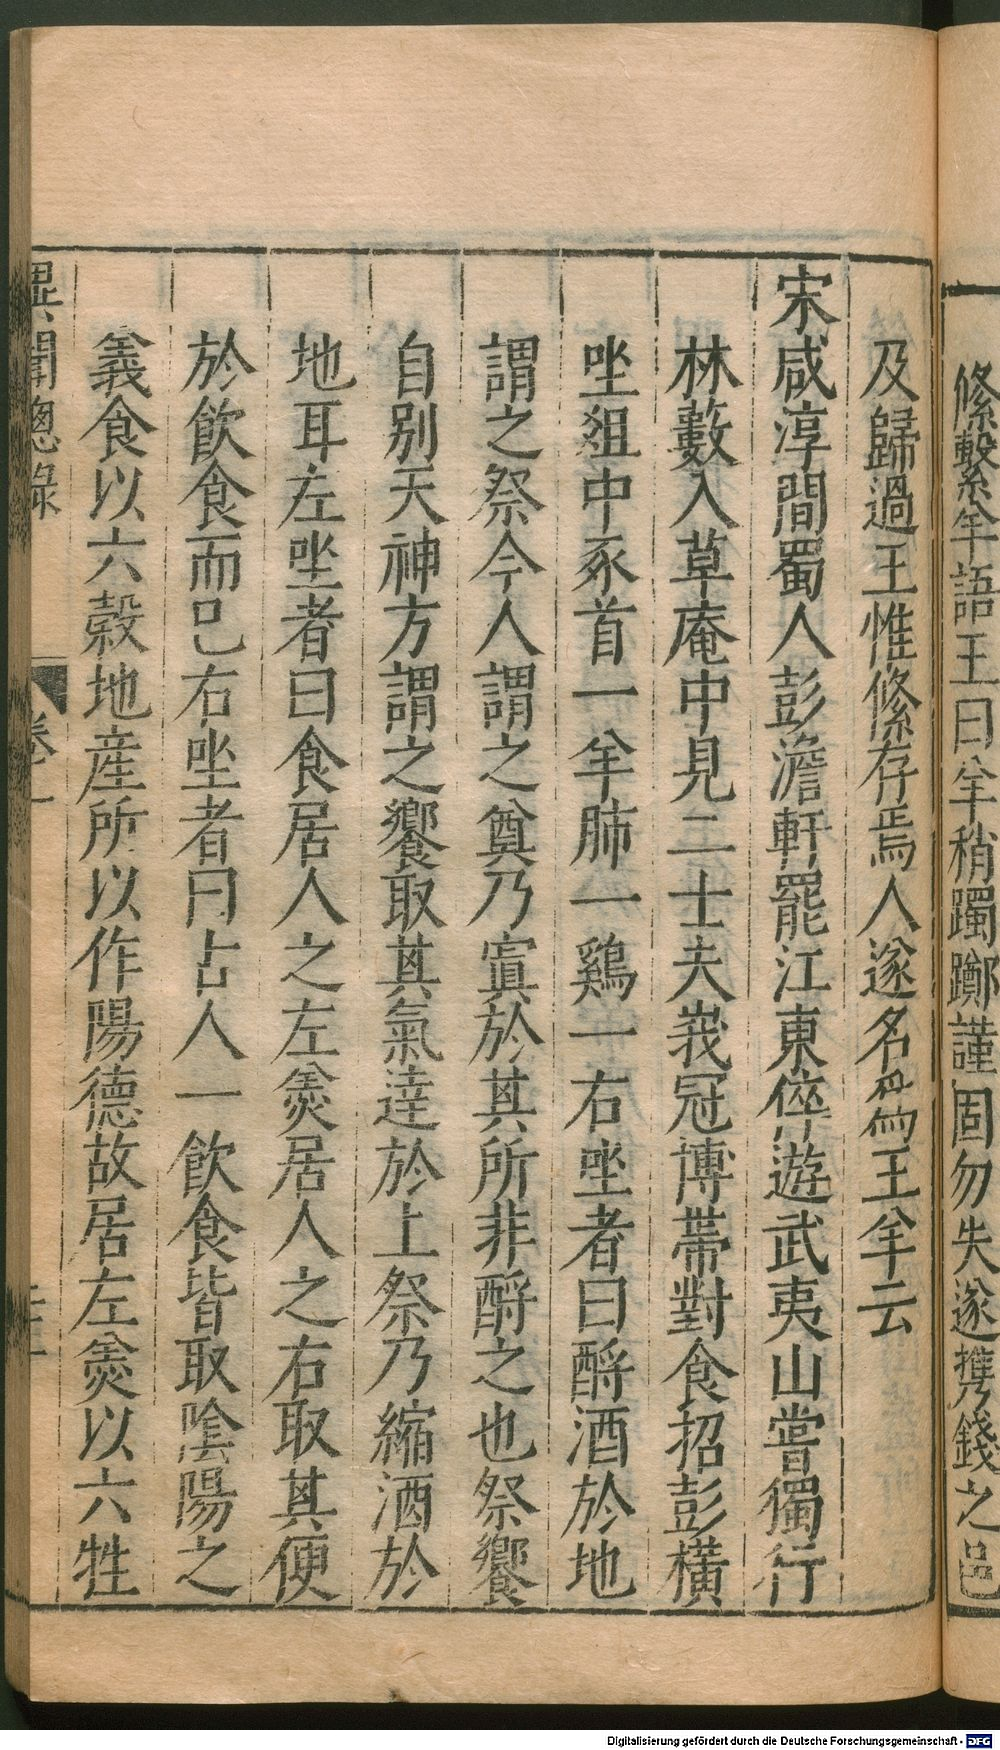 絛繫羊語王曰羊稍躅躑謹固勿失遂携錢之邑
及歸過王惟絛存焉人遂名爲王羊云
宋咸淳間蜀人彭澹軒罷江東倅遊武夷山嘗獨行
林藪入草庵中見二士夫峩冠博帶對食招彭橫
坐俎中豕首一羊肺一鷄一右坐者曰酹酒於地
謂之祭今人謂之奠乃寘於其所非酹之也祭饗
自别天神方謂之饗取其氣達於上祭乃縮酒於
地耳左坐者曰食居人之左羹居人之右取其便
於飲食而已右坐者曰古人一飲食皆取陰陽之
義食以六榖地産所以作陽德故居左羹以六牲
異聞總錄
卷一
Digitalisierung gefördert durch die Deutsche Forschungsgemeinschaft - DFG